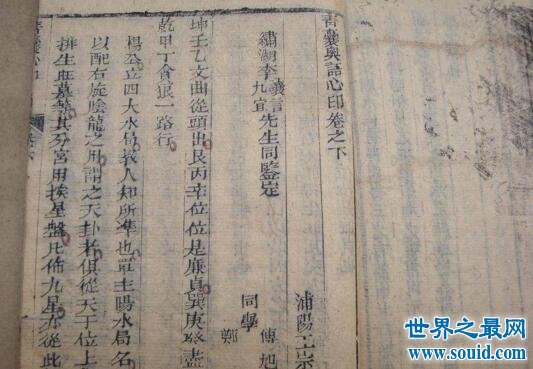 青囊奧語心印卷之下
浦陽王宗
繡湖李義言九宜先生同鑑定
同學
傅旭
鄭
坤壬乙文曲從頭出艮丙辛位位是廉貞巽庚癸盡
乾甲丁貪狼一路行
楊公立四大水局教人知所準也 主陽水局名
以配右旋陰龍之用謂之天卦者俱從天干位上
排生旺墓等其分宮用挨星盤凡佈九星亦從此
世界之最网
www.souid.com